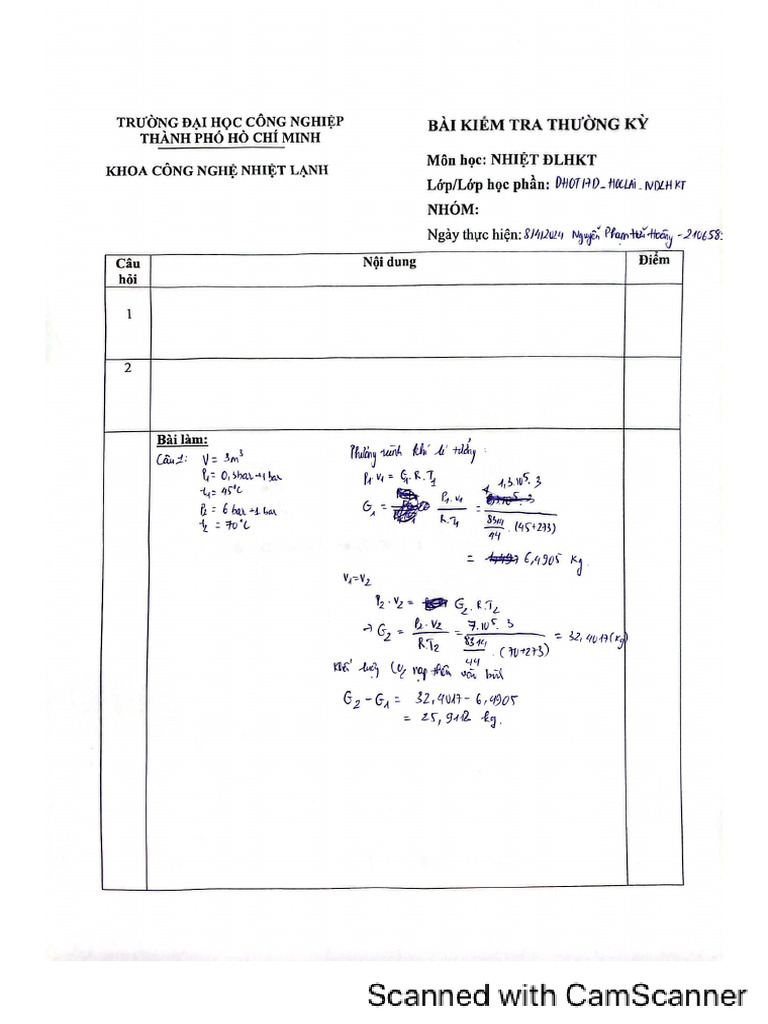 TRƯỜNG ĐẠI HỌC CÔNG NGHIỆP
THÀNH PHỐ HỒ CHÍ MINH
KHOA CÔNG NGHỆ NHIỆT LẠNH
BÀI KIỂM TRA THƯỜNG KỲ
Môn học: NHIỆT ĐLHKT
Lớp/Lớp học phần: DHOT17D_HOCLAI_NDLHKT
NHÓM:
Ngày thực hiện: 8/4/2024 Nguyễn Phạm Hoàng - 210658
Câu hỏi Nội dung Điểm
1
2
Bài làm:
Câu 1: V = 3m³
P₁ = 0,3bar+1bar
t₁ = 45°C
P₂ = 6bar+1bar
t₂ = 70°C
Phương trình khí lí tưởng:
P₁.V₁ = G₁.R.T₁
G₁ = P₁.V₁ / R.T₁ = 1,3.10⁵.3 / (8314/44 . (45+273))
= 6,4905 kg.
V₁=V₂
P₂.V₂ = G₂.R.T₂
→ G₂ = P₂.V₂ / R.T₂ = 7.10⁵.3 / (8314/44 . (70+273)) = 32,4017(kg)
Khối lượng nạp thêm vào bình
G₂ - G₁ = 32,4017 - 6,4905
= 25,912 kg.
Scanned with CamScanner